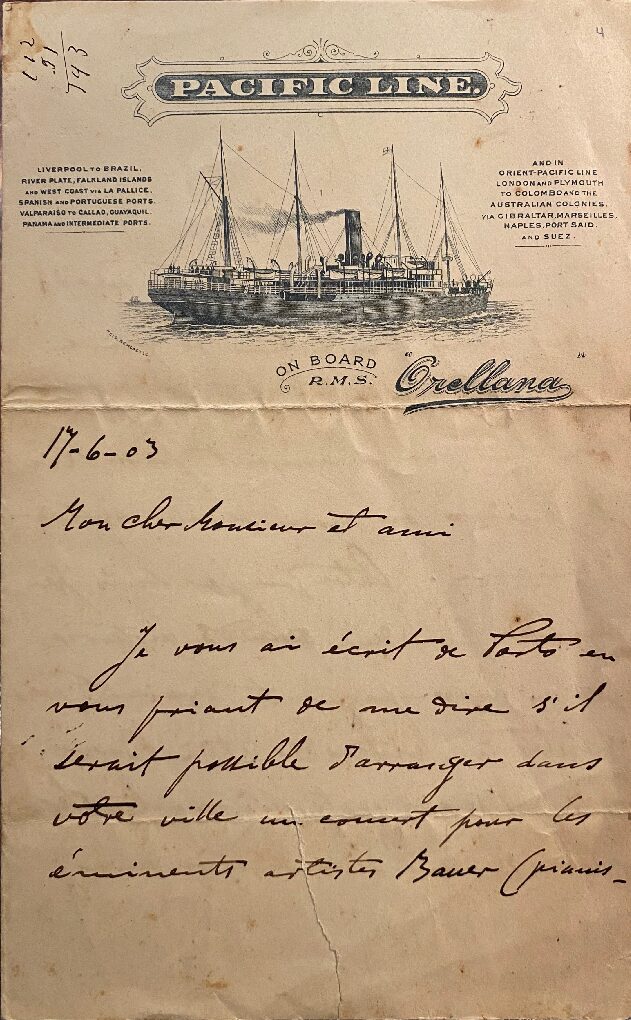 112
91
793
4
PACIFIC LINE.
LIVERPOOL TO BRAZIL,
RIVER PLATE, FALKLAND ISLANDS
AND WEST COAST VIA LA PALLICE,
SPANISH AND PORTUGUESE PORTS.
VALPARAISO TO CALLAO, GUAYAQUIL,
PANAMA AND INTERMEDIATE PORTS.
AND IN
ORIENT-PACIFIC LINE
LONDON AND PLYMOUTH
TO COLOMBO AND THE
AUSTRALIAN COLONIES,
VIA GIBRALTAR, MARSEILLES,
NAPLES, PORT SAID,
AND SUEZ.
ON BOARD
R.M.S. "Orellana"
17-6-03
Mon cher Monsieur et ami
Je vous ai écrit de Porto en
vous priant de me dire s'il
serait possible d'arranger dans
votre ville un concert pour les
éminents artistes Bauer (pianis-